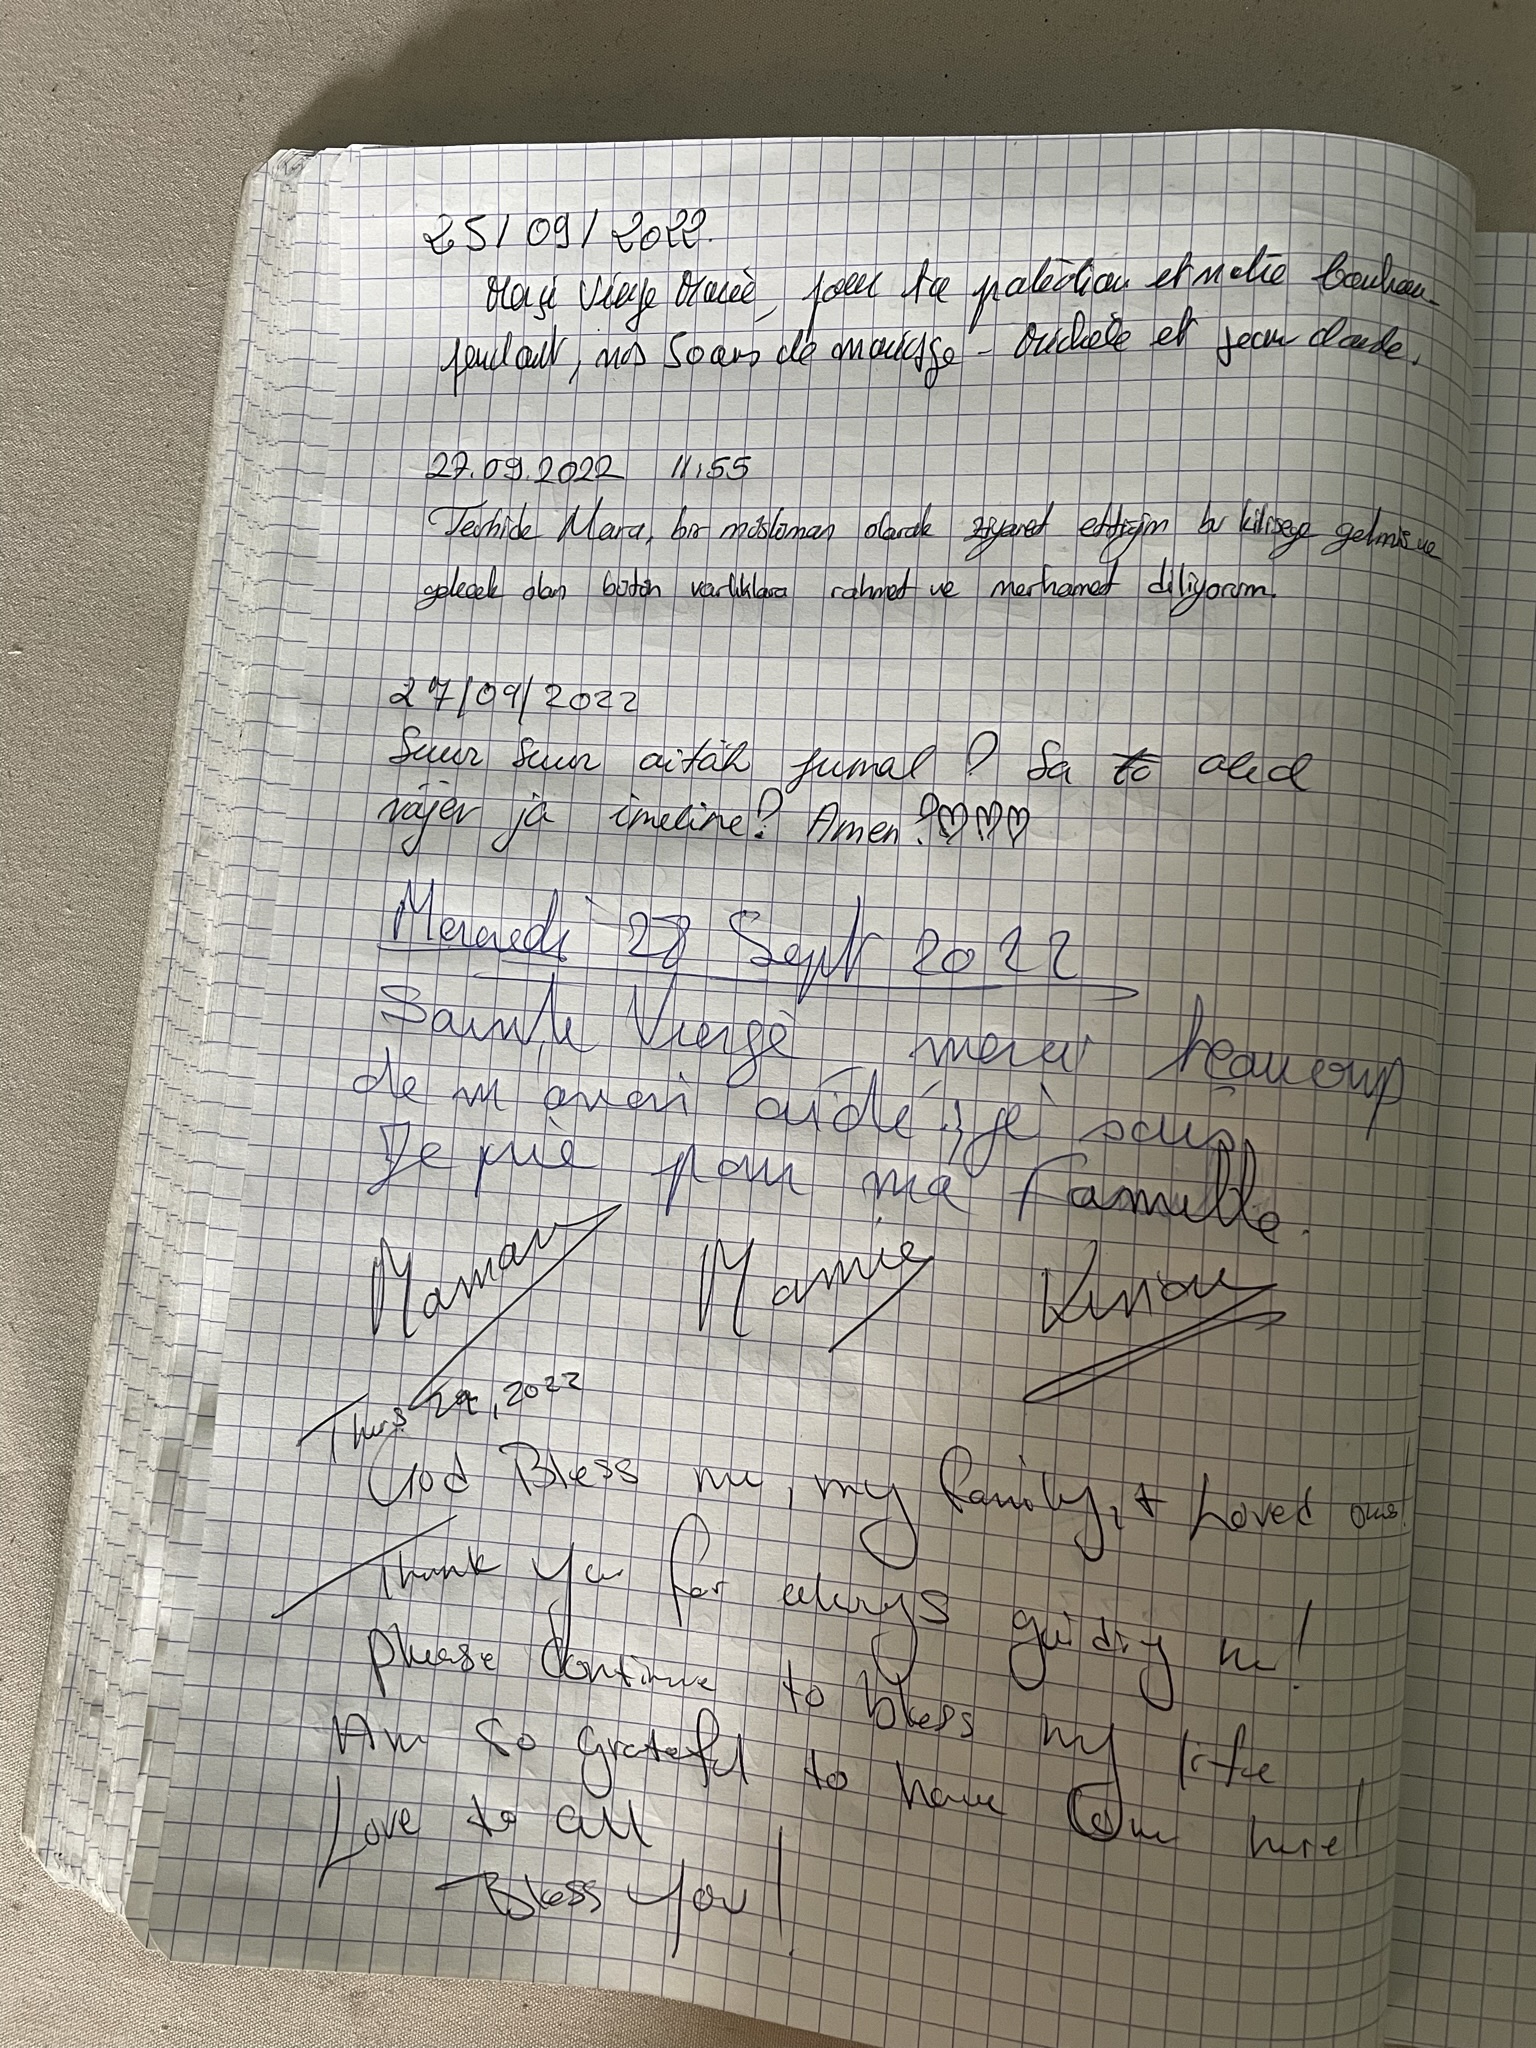 25/09/2022.
Vierge Marie, pour ta protection et notre bonheur
pendant, nos 50 ans de mariage - Michèle et Jean Claude.
27.09.2022 11:55
bir müslüman olarak ziyaret ettiğim bu kiliseye gelmiş ve
gelecek olan bütün varlıklara rahmet ve merhamet diliyorum.
27/09/2022
Suur Suur aitäh Jumal! Sa oled
vägev ja imeline! Amen!♡♡♡
Mercredi 28 Sept 2022
Sainte Vierge merci beaucoup
de m'avoir aidé
Je prie pour ma famille.
Maman Mamie
Thurs. 29, 2022
God Bless me, my family, + Loved ones!
Thank you for always guiding me!
please continue to bless my life
Am so grateful to have come here!
Love to all
Bless you!